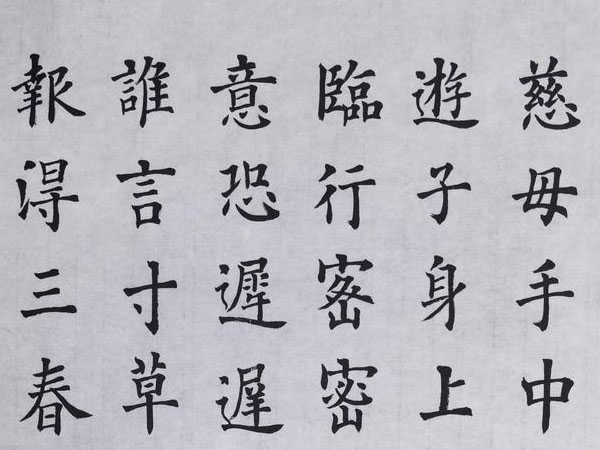 慈母手中
遊子身上
臨行密密
意恐遲遲
誰言寸草
報得三春